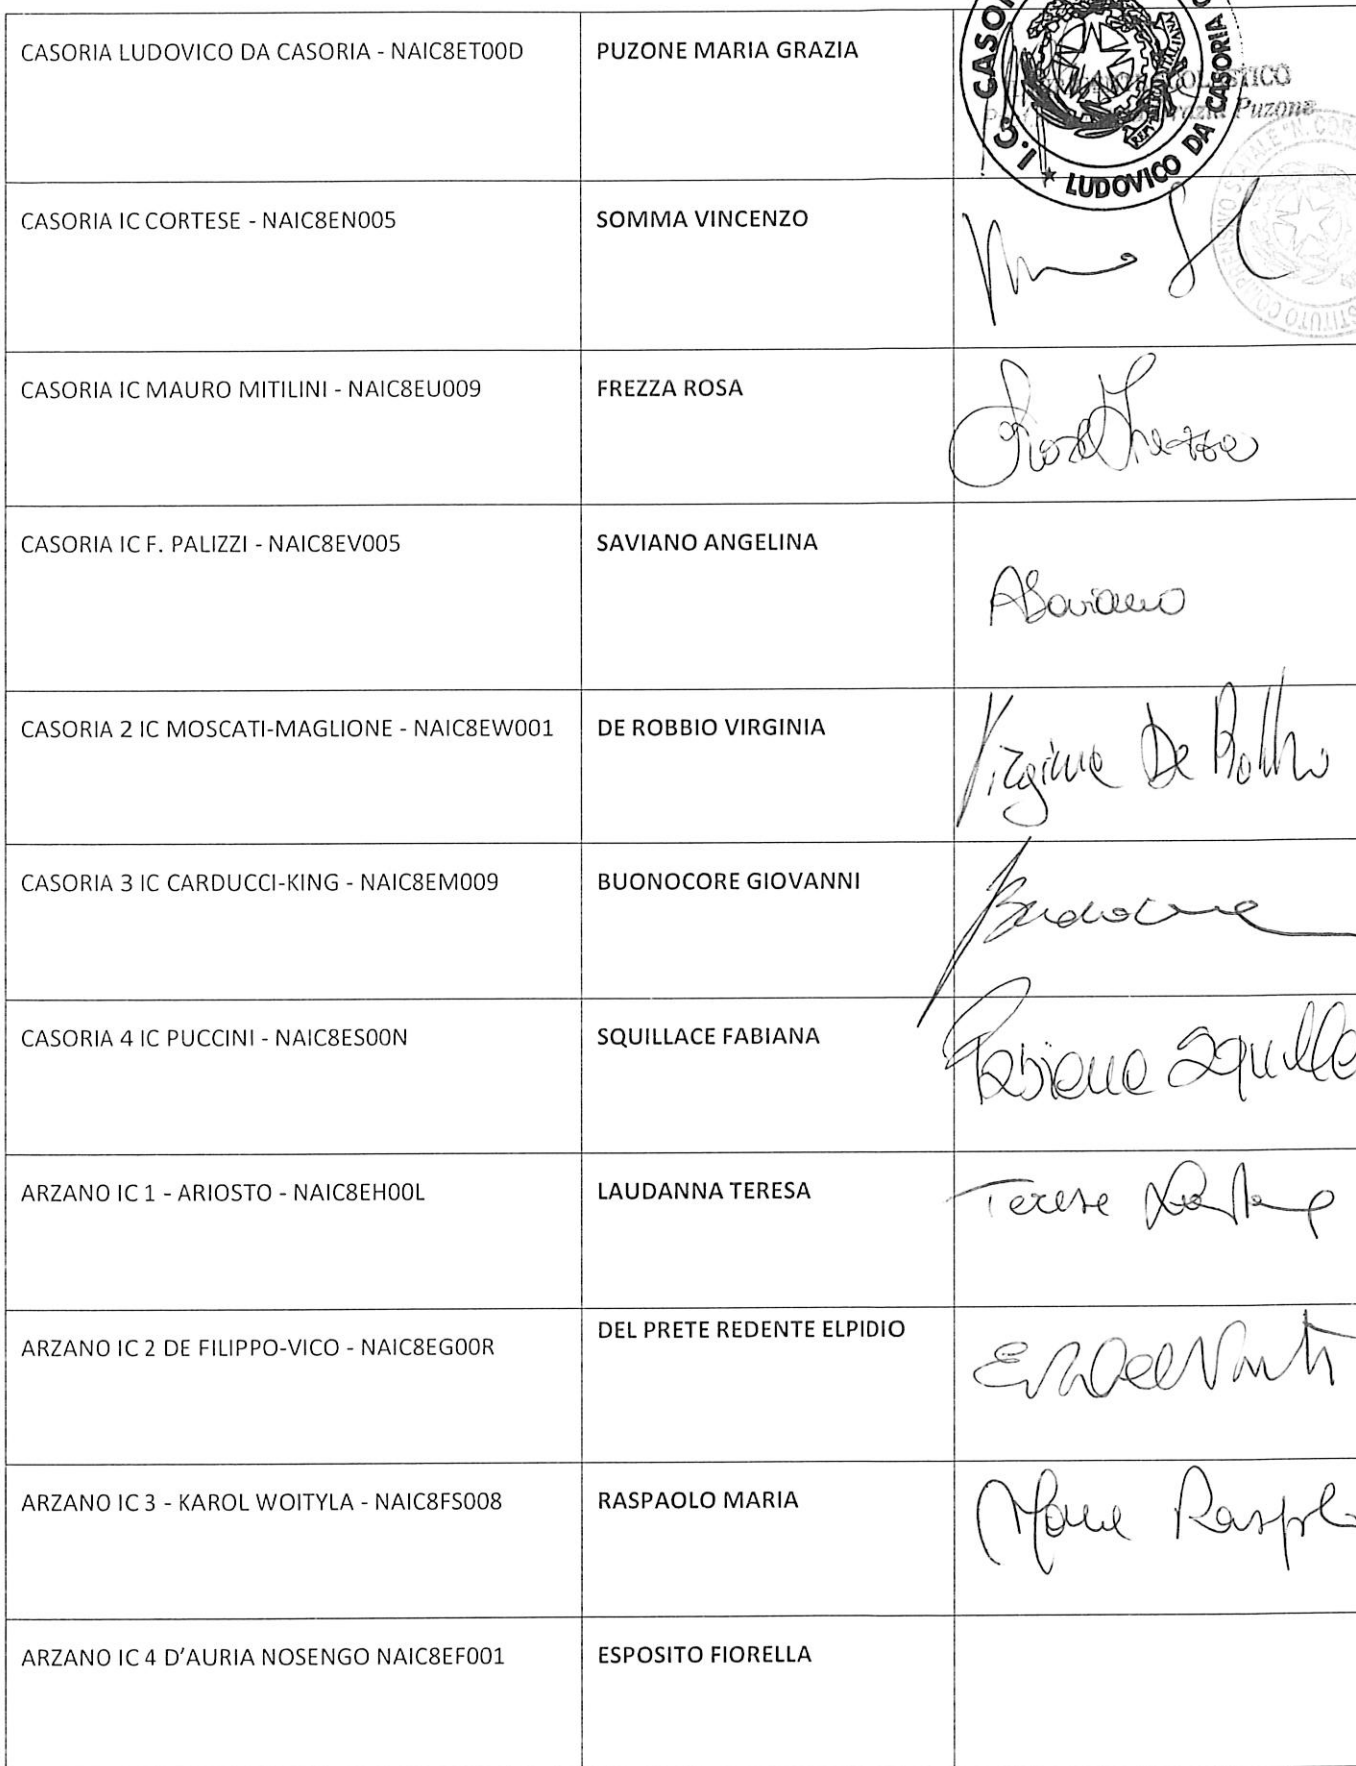 CASORIA LUDOVICO DA CASORIA - NAIC8ET00D
PUZONE MARIA GRAZIA
I.C. CASORIA
* LUDOVICO DA CASORIA
Puzone
CASORIA IC CORTESE - NAIC8EN005
SOMMA VINCENZO
CASORIA IC MAURO MITILINI - NAIC8EU009
FREZZA ROSA
Rosa Frezza
CASORIA IC F. PALIZZI - NAIC8EV005
SAVIANO ANGELINA
ASaviano
CASORIA 2 IC MOSCATI-MAGLIONE - NAIC8EW001
DE ROBBIO VIRGINIA
Virginia De Robbio
CASORIA 3 IC CARDUCCI-KING - NAIC8EM009
BUONOCORE GIOVANNI
CASORIA 4 IC PUCCINI - NAIC8ES00N
SQUILLACE FABIANA
Fabiana Squilla
ARZANO IC 1 - ARIOSTO - NAIC8EH00L
LAUDANNA TERESA
Teresa
ARZANO IC 2 DE FILIPPO-VICO - NAIC8EG00R
DEL PRETE REDENTE ELPIDIO
ARZANO IC 3 - KAROL WOITYLA - NAIC8FS008
RASPAOLO MARIA
Maria
ARZANO IC 4 D’AURIA NOSENGO NAIC8EF001
ESPOSITO FIORELLA